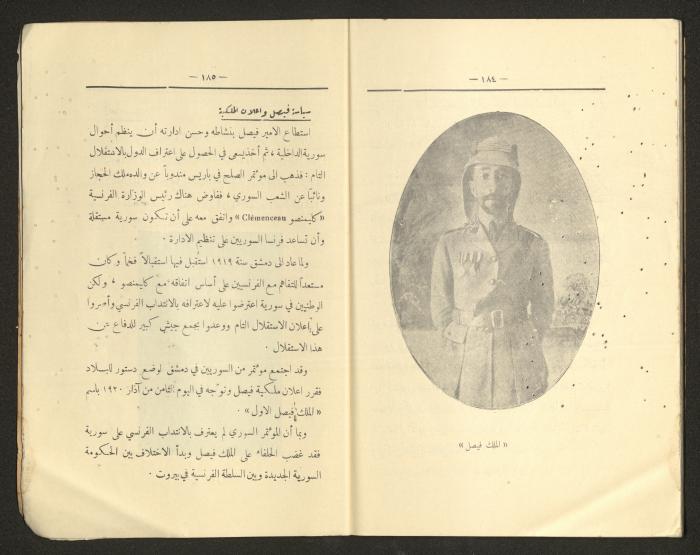 — ١٨٤ —
« الملك فيصل »
— ١٨٥ —
سياسة فيصل واعلان الملكية:
استطاع الامير فيصل بنشاطه وحسن ادارته أن ينظم أحوال
سورية الداخلية ، ثم أخذ يسعى في الحصول على اعتراف الدول بالاستقلال
التام : فذهب الى مؤتمر الصلح في باريس مندوباً عن والده ملك الحجاز
ونائباً عن الشعب السوري ، ففاوض هناك رئيس الوزارة الفرنسية
« كليمنصو Clémenceau » واتفق معه على أن تكون سورية مستقلة
وأن تساعد فرنسا السوريين على تنظيم الادارة .
ولما عاد الى دمشق سنة ١٩١٩ استُقبل فيها استقبالاً فخماً وكان
مستعداً للتفاهم مع الفرنسيين على أساس اتفاقه مع كليمنصو ، ولكن
الوطنيين في سورية اعترضوا عليه لاعترافه بالانتداب الفرنسي وأصروا
على إعلان الاستقلال التام ووعدوا بجمع جيش كبير للدفاع عن
هذا الاستقلال .
وقد اجتمع مؤتمر من السوريين في دمشق لوضع دستور للبلاد
فقرر اعلان ملكية فيصل وتوّجه في اليوم الثامن من آذار ١٩٢٠ باسم
« الملك فيصل الاول » .
وبما أن المؤتمر السوري لم يعترف بالانتداب الفرنسي على سورية
فقد غضب الحلفاء على الملك فيصل وبدأ الاختلاف بين الحكومة
السورية الجديدة وبين السلطة الفرنسية في بيروت .